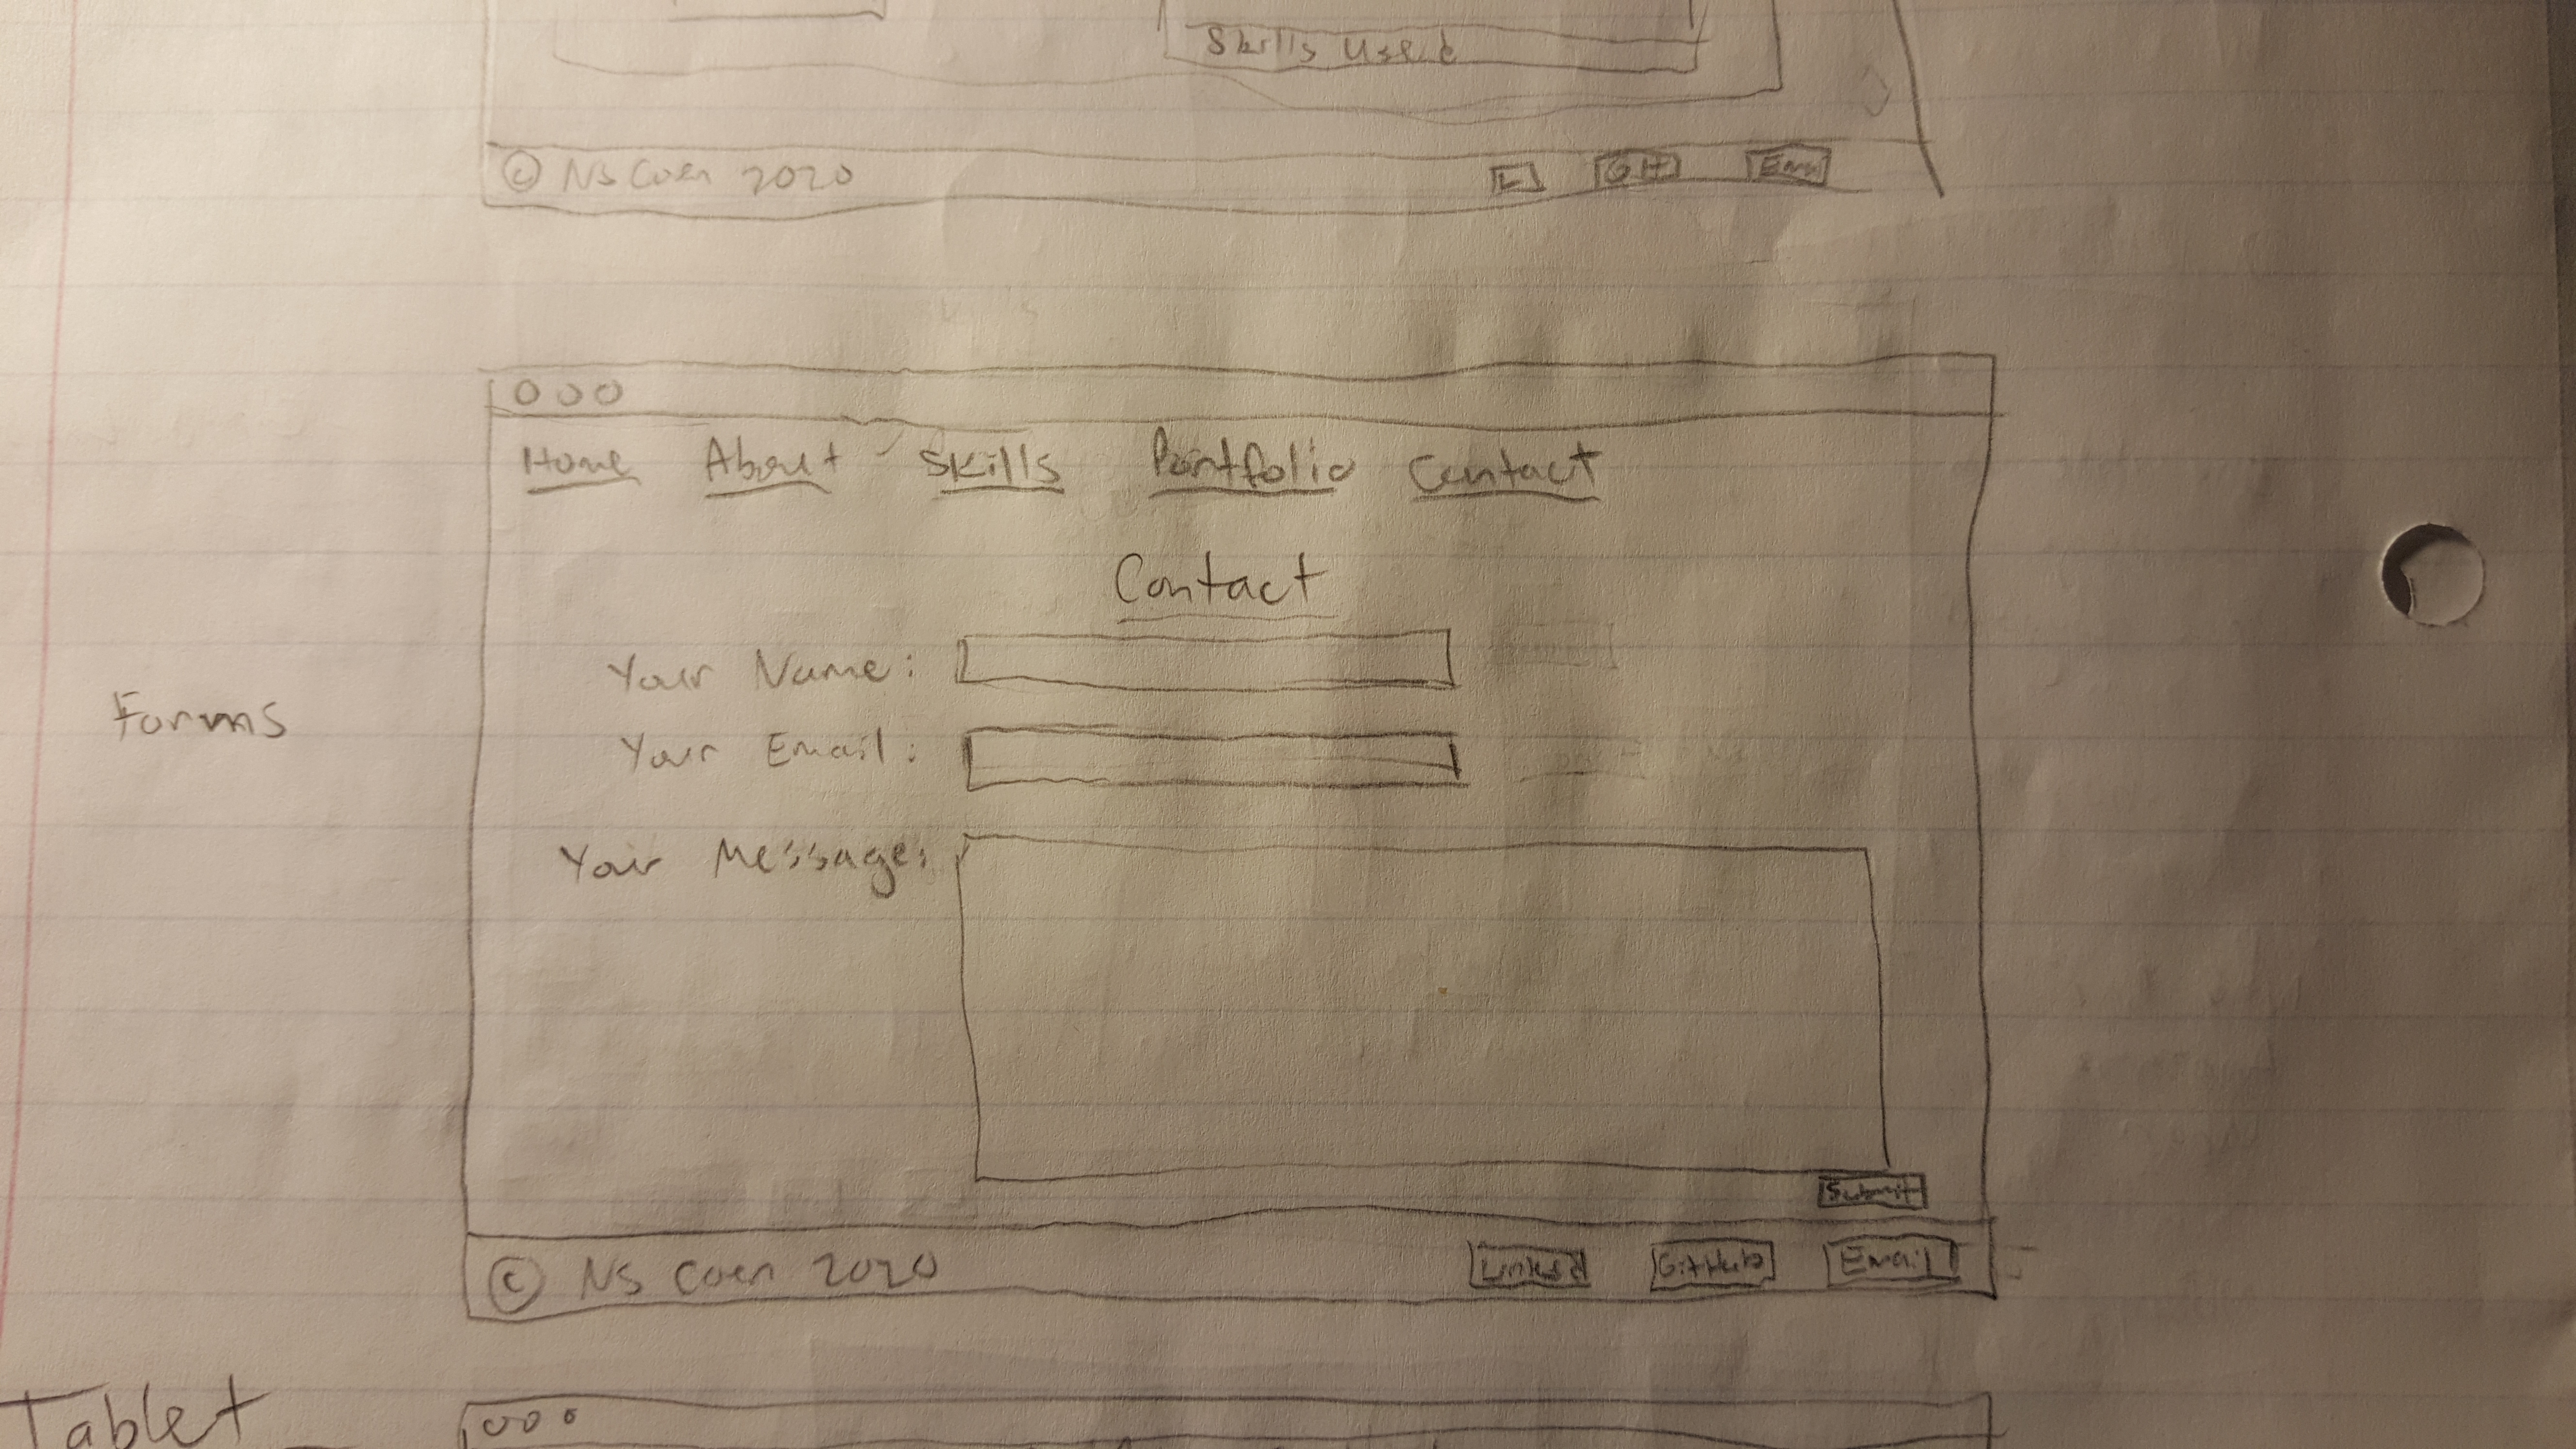 Skills Used
© NS Coen 2020 L GH Email
Home About Skills Portfolio Contact
Contact
Your Name:
Forms
Your Email:
Your Message:
Submit
© NS Coen 2020 Linked GitHub Email
Tablet